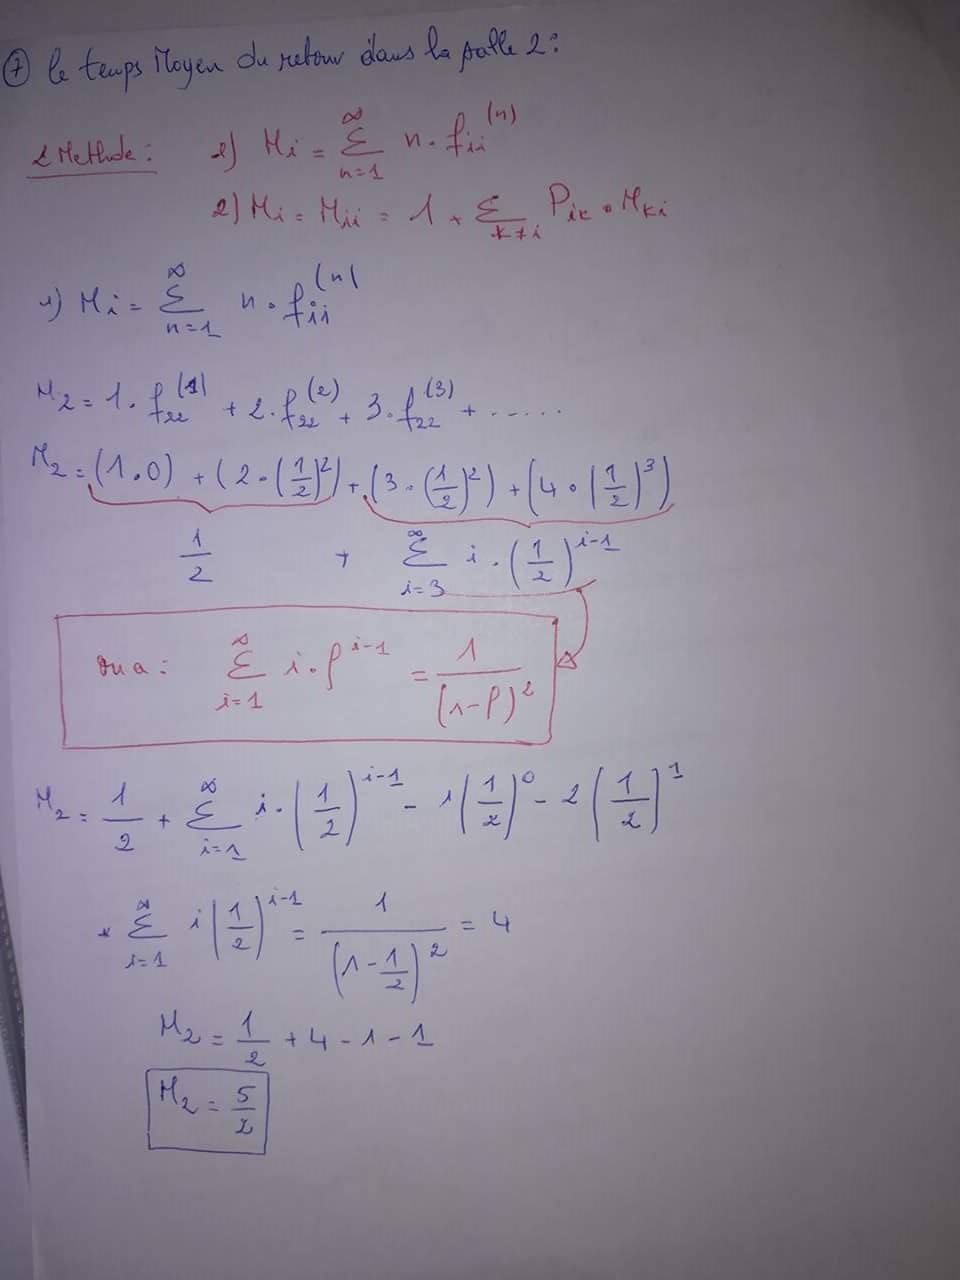 ⑦ le temps Moyen du retour dans la salle 2 :
2 Methode : 1) Mi = ∞Σn=1 n . fii^(n)
2) Mi = Mii = 1 + Σk≠i Pik . Mki
1) Mi = ∞Σn=1 n . fii^(n)
M2 = 1 . f22^(1) + 2 . f22^(2) + 3 . f22^(3) + ......
M2 = (1 . 0) + (2 . (1/2)^2) + (3 . (1/2)^2) + (4 . (1/2)^3)
1/2 + ∞Σi=3 i . (1/2)^i-1
on a : ∞Σi=1 i . ρ^i-1 = 1/(1-ρ)^2
M2 = 1/2 + ∞Σi=1 i . (1/2)^i-1 - 1(1/2)^0 - 2(1/2)^1
* ∞Σi=1 i(1/2)^i-1 = 1/(1-1/2)^2 = 4
M2 = 1/2 + 4 - 1 - 1
M2 = 5/2